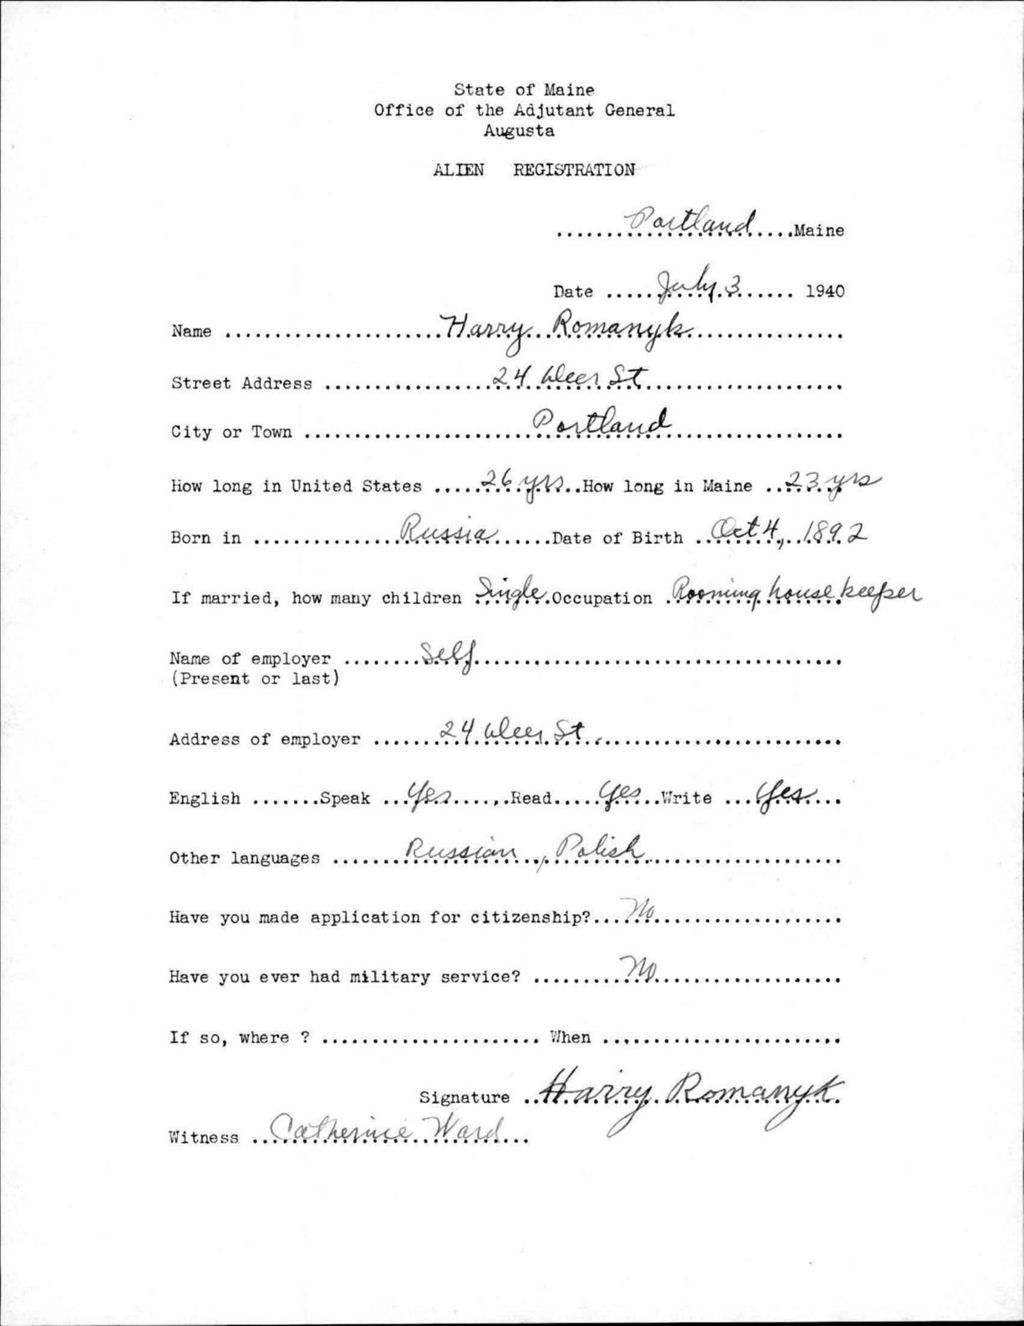 State of Maine
Office of the Adjutant General
Augusta
ALIEN REGISTRATION
.......Portland.....Maine
Date .....July 3...... 1940
Name ......................Harry Romanyk...............
Street Address .................24 Deer St....................
City or Town .......................Portland.................
How long in United States .....26 yrs..How long in Maine ..23 yrs
Born in ...............Russia......Date of Birth ..Oct 4, 1892
If married, how many children .Single.Occupation .Rooming house keeper
Name of employer ........Self.....................................
(Present or last)
Address of employer .......24 Deer St..........................
English .......Speak ...Yes......Read.....Yes...Write ...Yes....
Other languages ........Russian, Polish....................
Have you made application for citizenship?...No...................
Have you ever had military service? .........No...................
If so, where ? ...................... When ........................
Signature ..Harry Romanyk.
Witness ..Catherine Ward...